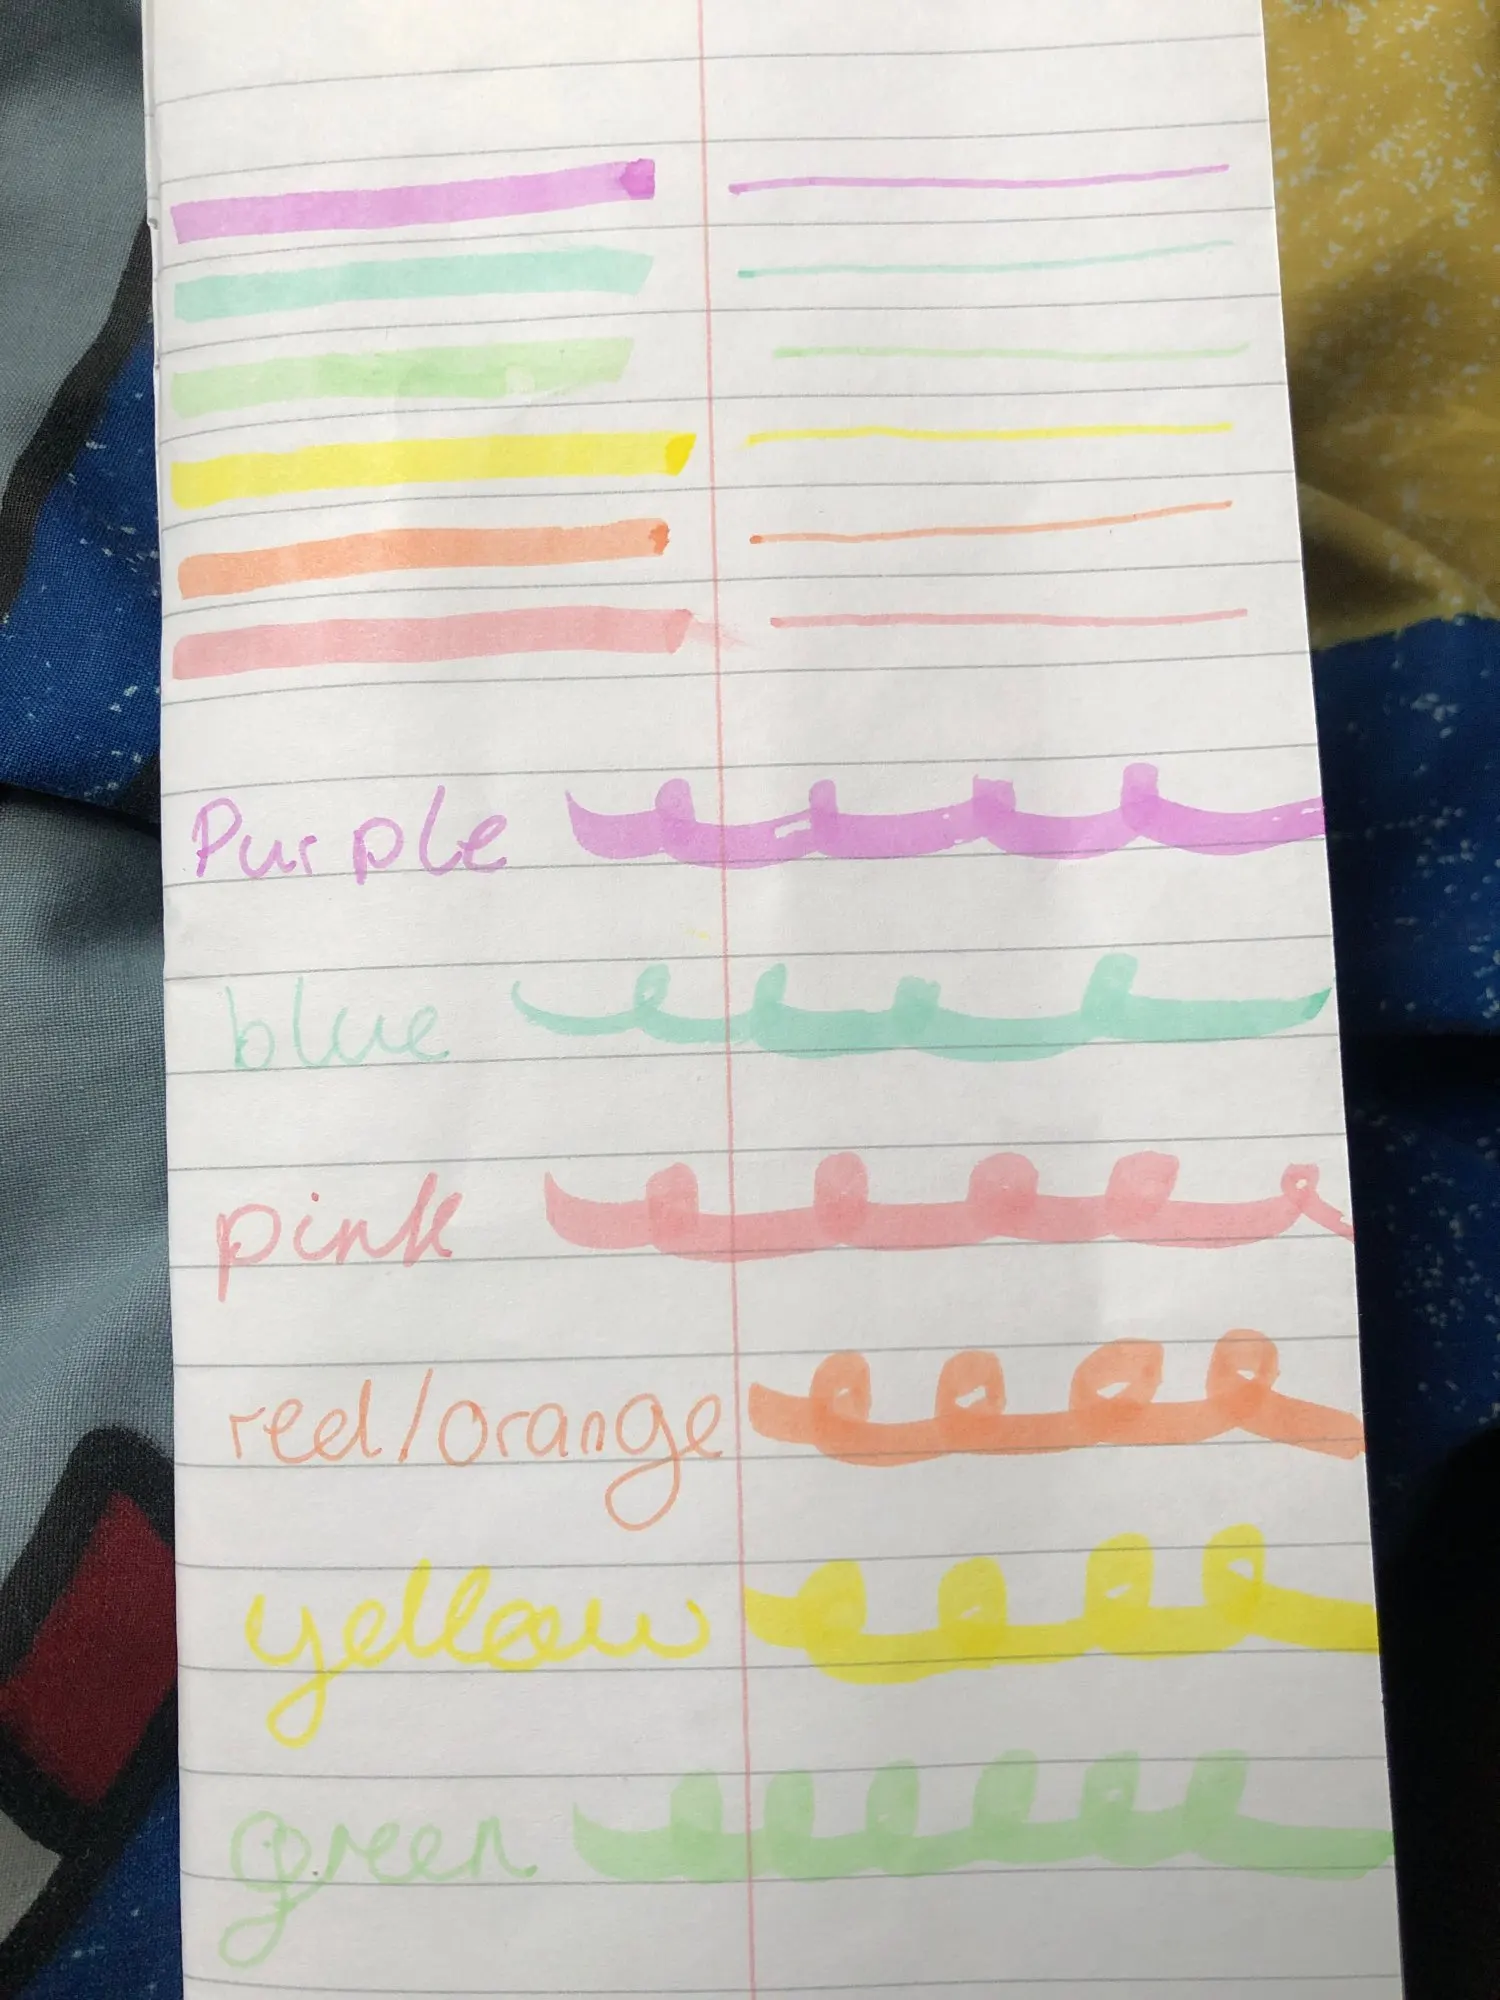 Purple
blue
pink
red/orange
yellow
green